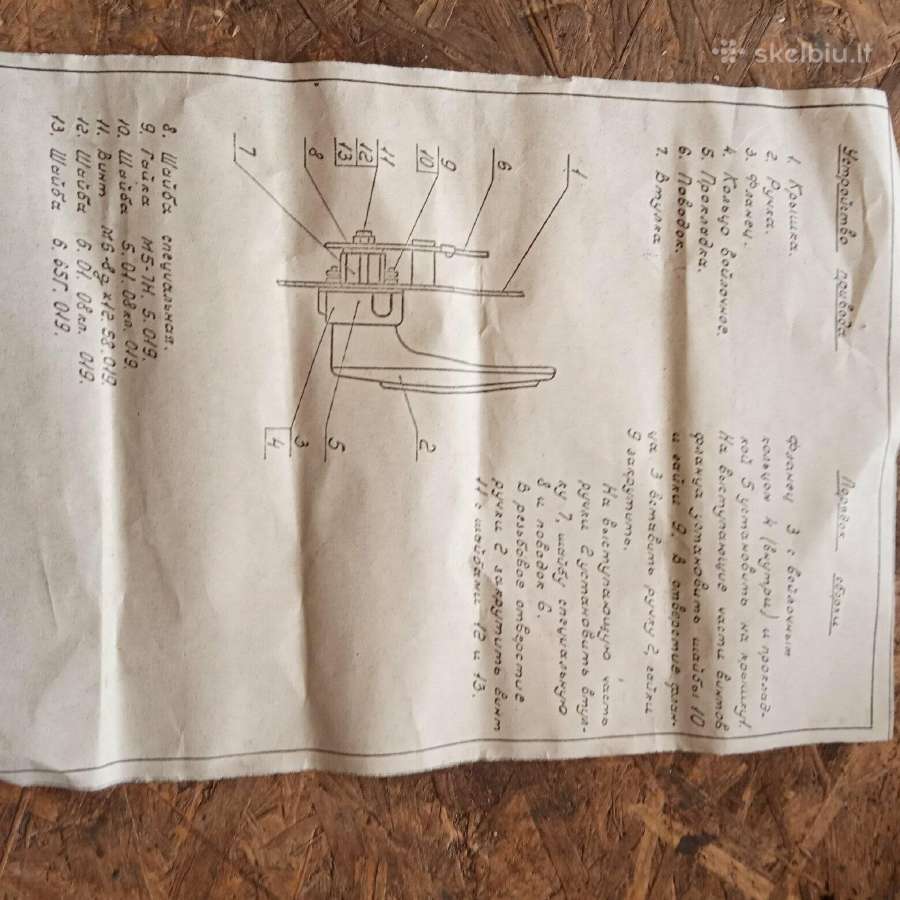 skelbiu.lt
Устройство привода
1. Крышка.
2. Ручка.
3. Фланец.
4. Кольцо войлочное.
5. Прокладка.
6. Поводок.
7. Втулка
8. Шайба специальная.
9. Гайка М5-7Н. 5. 019.
10. Шайба 5. 01. 08кп. 019.
11. Винт М6-8g x12. 58. 019.
12. Шайба 6. 01. 08кп. 019.
13. Шайба 6. 65Г. 019.
1
6
9
10
11
12
13
8
7
2
5
3
4
Порядок сборки
Фланец 3 с войлочным
кольцом 4 (внутри) и проклад-
кой 5 установить на крышку 1.
На выступающие части винтов
фланца установить шайбы 10
и гайки 9. В отверстие флан-
ца 3 вставить ручку 2, гайки
9 закрутить.
На выступающую часть
ручки 2 установить втул-
ку 7, шайбу специальную
8 и поводок 6.
В резьбовое отверстие
ручки 2 закрутить винт
11 с шайбами 12 и 13.